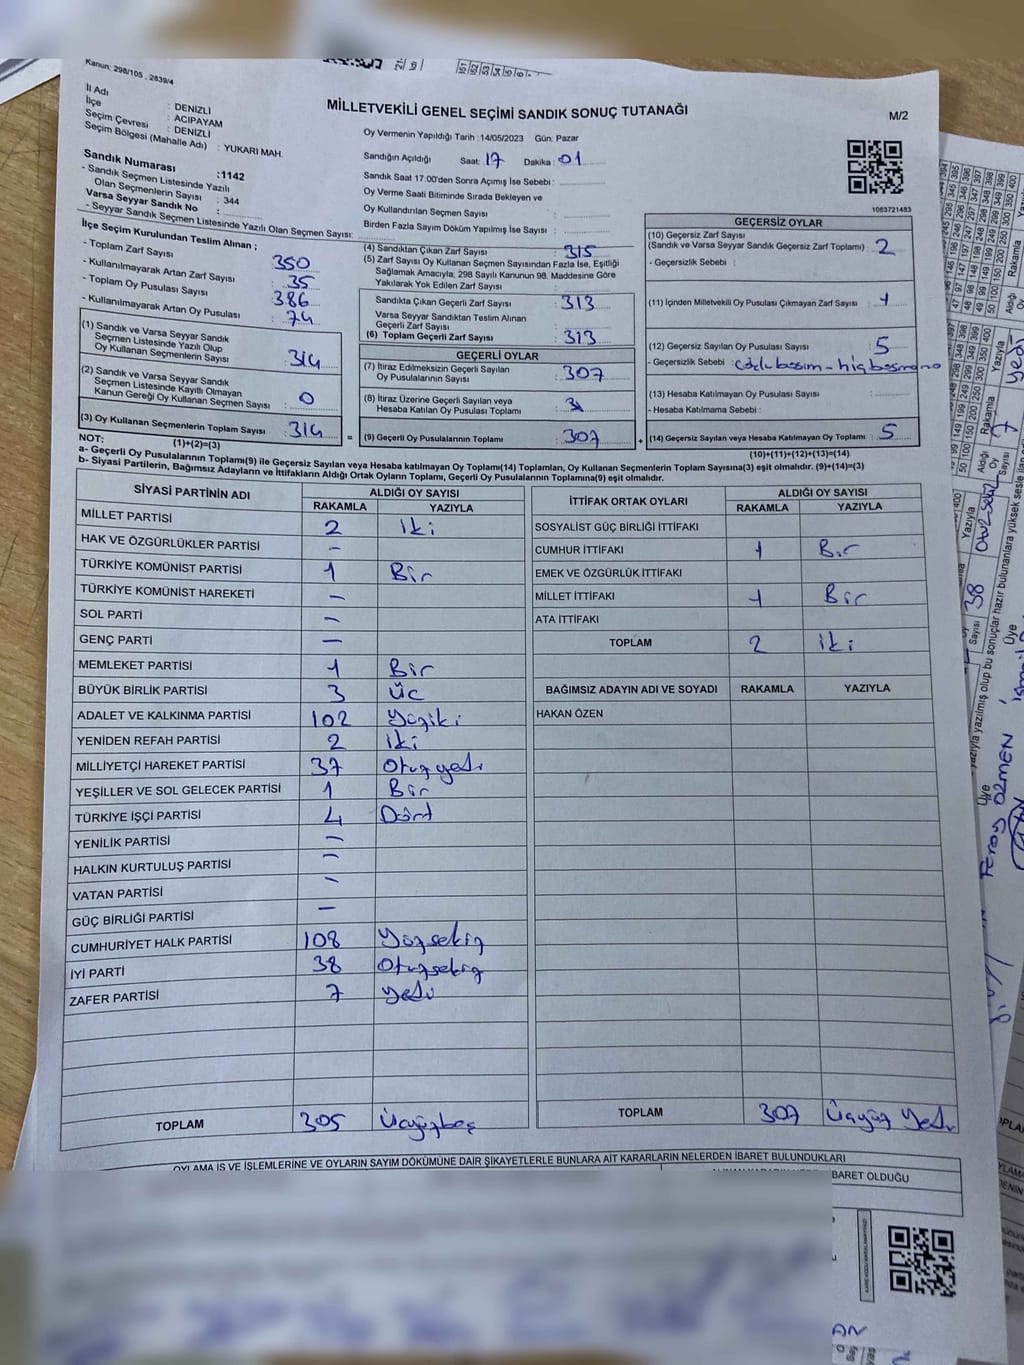 Kanun: 298/105 , 2839/4
İl Adı : DENİZLİ
İlçe : ACIPAYAM
Seçim Çevresi : DENİZLİ
Seçim Bölgesi (Mahalle Adı) : YUKARI MAH.
Sandık Numarası :1142
- Sandık Seçmen Listesinde Yazılı
Olan Seçmenlerin Sayısı : 344
Varsa Seyyar Sandık No :
- Seyyar Sandık Seçmen Listesinde Yazılı Olan Seçmen Sayısı:
MİLLETVEKİLİ GENEL SEÇİMİ SANDIK SONUÇ TUTANAĞI
M/2
Oy Vermenin Yapıldığı Tarih :14/05/2023 Gün: Pazar
Sandığın Açıldığı Saat: 17 Dakika: 01
Sandık Saat 17.00'den Sonra Açımış İse Sebebi :
Oy Verme Saati Bitiminde Sırada Bekleyen ve
Oy Kullandırılan Seçmen Sayısı :
Birden Fazla Sayım Döküm Yapılmış İse Sayısı :
1083721483
İlçe Seçim Kurulundan Teslim Alınan ;
- Toplam Zarf Sayısı : 350
- Kullanılmayarak Artan Zarf Sayısı : 35
- Toplam Oy Pusulası Sayısı : 386
- Kullanılmayarak Artan Oy Pusulası : 74
(1) Sandık ve Varsa Seyyar Sandık
Seçmen Listesinde Yazılı Olup
Oy Kullanan Seçmenlerin Sayısı : 314
(2) Sandık ve Varsa Seyyar Sandık
Seçmen Listesinde Kayıtlı Olmayan
Kanun Gereği Oy Kullanan Seçmen Sayısı : 0
(3) Oy Kullanan Seçmenlerin Toplam Sayısı : 314
(4) Sandıktan Çıkan Zarf Sayısı : 315
(5) Zarf Sayısı Oy Kullanan Seçmen Sayısından Fazla İse, Eşitliği
Sağlamak Amacıyla, 298 Sayılı Kanunun 98. Maddesine Göre
Yakılarak Yok Edilen Zarf Sayısı :
Sandıkta Çıkan Geçerli Zarf Sayısı : 313
Varsa Seyyar Sandıktan Teslim Alınan
Geçerli Zarf Sayısı :
(6) Toplam Geçerli Zarf Sayısı : 313
GEÇERLİ OYLAR
(7) İtiraz Edilmeksizin Geçerli Sayılan
Oy Pusulalarının Sayısı : 307
(8) İtiraz Üzerine Geçerli Sayılan veya
Hesaba Katılan Oy Pusulası Toplamı :
= (9) Geçerli Oy Pusulalarının Toplamı : 307 +
GEÇERSİZ OYLAR
(10) Geçersiz Zarf Sayısı
(Sandık ve Varsa Seyyar Sandık Geçersiz Zarf Toplamı) : 2
- Geçersizlik Sebebi :
(11) İçinden Milletvekili Oy Pusulası Çıkmayan Zarf Sayısı : 1
(12) Geçersiz Sayılan Oy Pusulası Sayısı : 5
- Geçersizlik Sebebi :
(13) Hesaba Katılmayan Oy Pusulası Sayısı :
- Hesaba Katılmama Sebebi :
(14) Geçersiz Sayılan veya Hesaba Katılmayan Oy Toplamı : 5
NOT: (1)+(2)=(3)
(10)+(11)+(12)+(13)=(14)
a- Geçerli Oy Pusulalarının Toplamı(9) ile Geçersiz Sayılan veya Hesaba katılmayan Oy Toplamı(14) Toplamları, Oy Kullanan Seçmenlerin Toplam Sayısına(3) eşit olmalıdır. (9)+(14)=(3)
b- Siyasi Partilerin, Bağımsız Adayların ve İttifakların Aldığı Ortak Oyların Toplamı, Geçerli Oy Pusulalarının Toplamına(9) eşit olmalıdır.
SİYASİ PARTİNİN ADI ALDIĞI OY SAYISI
RAKAMLA YAZIYLA
MİLLET PARTİSİ 2 iki
HAK VE ÖZGÜRLÜKLER PARTİSİ –
TÜRKİYE KOMÜNİST PARTİSİ 1 Bir
TÜRKİYE KOMÜNİST HAREKETİ –
SOL PARTİ –
GENÇ PARTİ –
MEMLEKET PARTİSİ 1 Bir
BÜYÜK BİRLİK PARTİSİ 3 Üç
ADALET VE KALKINMA PARTİSİ 102 Yüziki
YENİDEN REFAH PARTİSİ 2 iki
MİLLİYETÇİ HAREKET PARTİSİ 37 Otuzyedi
YEŞİLLER VE SOL GELECEK PARTİSİ 1 Bir
TÜRKİYE İŞÇİ PARTİSİ 4 Dört
YENİLİK PARTİSİ –
HALKIN KURTULUŞ PARTİSİ –
VATAN PARTİSİ –
GÜÇ BİRLİĞİ PARTİSİ –
CUMHURİYET HALK PARTİSİ 108 Yüzsekiz
İYİ PARTİ 38 Otuzsekiz
ZAFER PARTİSİ 7 yedi
TOPLAM 305 Üçyüzbeş
İTTİFAK ORTAK OYLARI ALDIĞI OY SAYISI
RAKAMLA YAZIYLA
SOSYALİST GÜÇ BİRLİĞİ İTTİFAKI
CUMHUR İTTİFAKI 1 Bir
EMEK VE ÖZGÜRLÜK İTTİFAKI
MİLLET İTTİFAKI 1 Bir
ATA İTTİFAKI
TOPLAM 2 iki
BAĞIMSIZ ADAYIN ADI VE SOYADI RAKAMLA YAZIYLA
HAKAN ÖZEN
TOPLAM 307 Üçyüz Yedi
OYLAMA İŞ VE İŞLEMLERİNE VE OYLARIN SAYIM DÖKÜMÜNE DAİR ŞİKAYETLERLE BUNLARA AİT KARARLARIN NELERDEN İBARET BULUNDUKLARI
BARET OLDUĞU